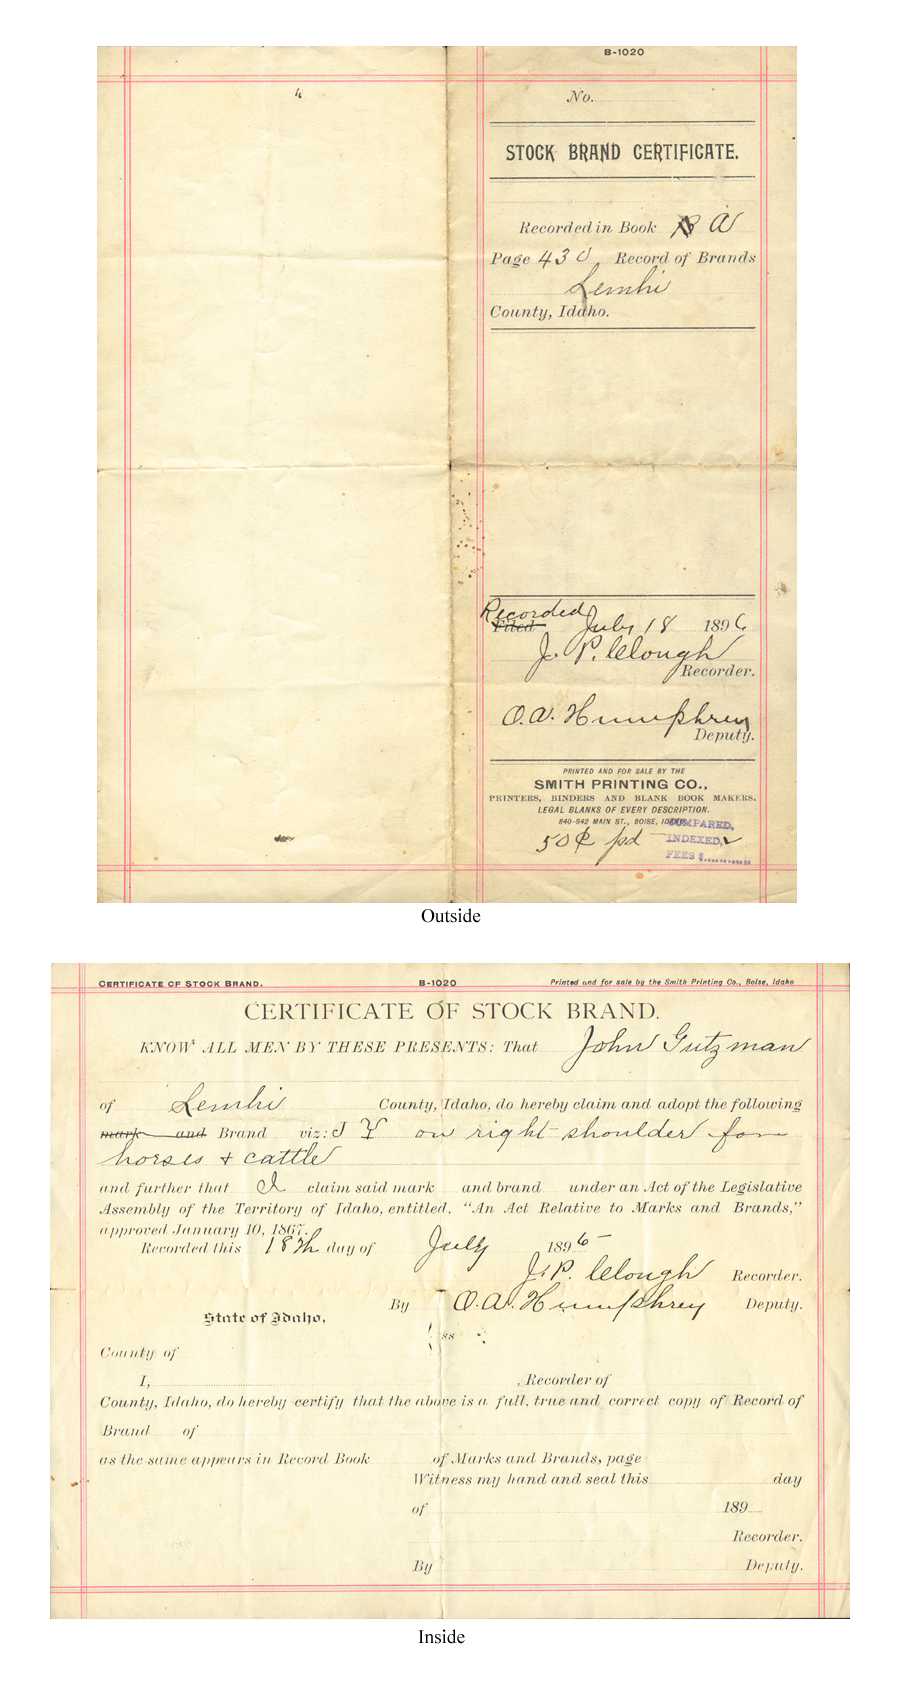 B-1020
4
No.
STOCK BRAND CERTIFICATE.
Recorded in Book B A
Page 430 Record of Brands
Lemhi
County, Idaho.
Recorded
Filed July 18 1896
J. P. Clough
Recorder.
O. A. Humphrey
Deputy.
PRINTED AND FOR SALE BY THE
SMITH PRINTING CO.,
PRINTERS, BINDERS AND BLANK BOOK MAKERS.
LEGAL BLANKS OF EVERY DESCRIPTION.
840-842 MAIN ST., BOISE, IDAHO.
COMPARED,
50¢ pd INDEXED,
FEES $
Outside
CERTIFICATE OF STOCK BRAND. B-1020 Printed and for sale by the Smith Printing Co., Boise, Idaho
CERTIFICATE OF STOCK BRAND.
KNOW ALL MEN BY THESE PRESENTS: That John Gutzman
of Lemhi County, Idaho, do hereby claim and adopt the following
mark and Brand viz: J on right shoulder for
horses & cattle
and further that I claim said mark and brand under an Act of the Legislative
Assembly of the Territory of Idaho, entitled, "An Act Relative to Marks and Brands,"
approved January 10, 1867.
Recorded this 18th day of July 1896
J. P. Clough Recorder.
By O. A. Humphrey Deputy.
State of Idaho,
ss
County of
I, , Recorder of
County, Idaho, do hereby certify that the above is a full, true and correct copy of Record of
Brand of
as the same appears in Record Book of Marks and Brands, page
Witness my hand and seal this day
of 189
Recorder.
By Deputy.
Inside